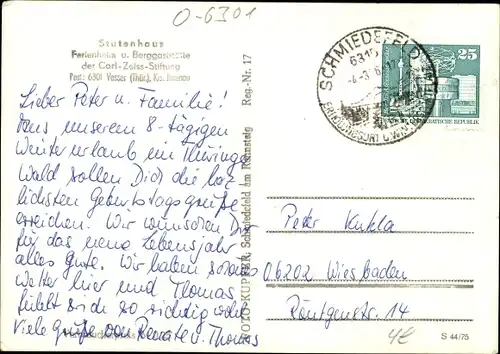 O-6301
Stutenhaus
Ferienheim u. Berggaststätte
der Carl-Zeiss-Stiftung
Post: 6301 Vesser (Thür.), Krs. Ilmenau
Lieber Peter u. Familie!
Aus unserem 8-tägigen
Winterurlaub im Thüringer
Wald sollen Dich die herz-
lichsten Geburtstagsgrüße
erreichen. Wir wünschen Dir
für das neue Lebensjahr
alles Gute. Wir haben
Wetter hier und Thomas
fühlt sich so richtig wohl
Viele Grüße von Renate u. Thomas
FOTO-KUPFER, Schmiedefeld am Rennsteig Reg.-Nr. 17
SCHMIEDEFELD
6315
25
DEMOKRATISCHE REPUBLIK
Peter Kukla
06202 Wiesbaden
Röntgenstr. 14
S 44/75